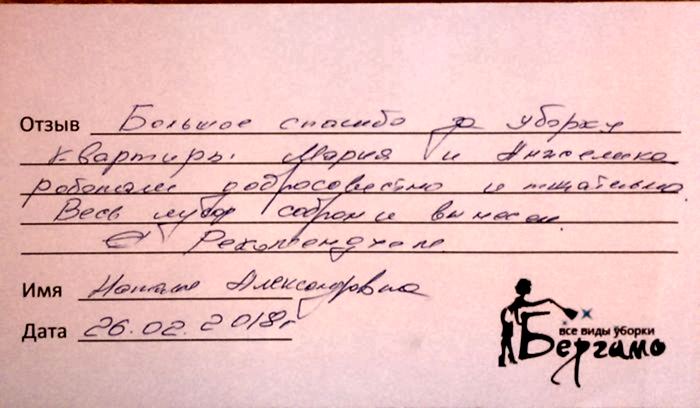 Отзыв Большое спасибо за уборку
квартиры. Мария и Анжелика
работали добросовестно и тщательно.
Весь мусор собран и вынесен.
Рекомендуем.
Имя Наталья Александровна
Дата 26.02.2018г
все виды уборки
Бергамо